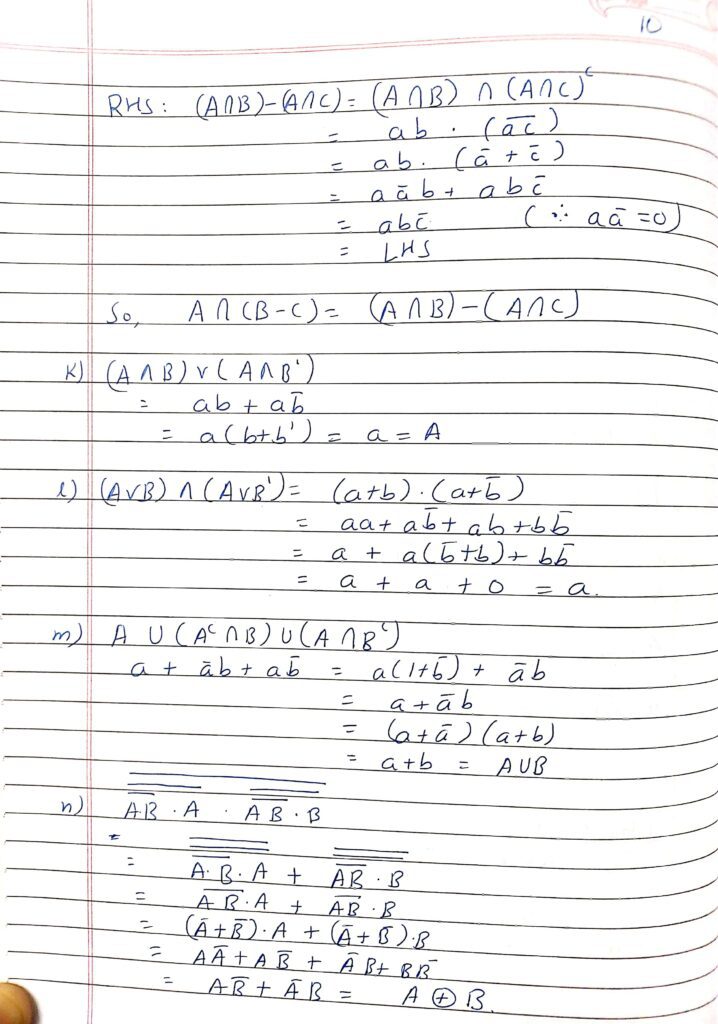 10
RHS: (A∩B)-(A∩C) = (A∩B) ∩ (A∩C)ᶜ
= ab . (a̅c̅)
= ab. (ā + c̄)
= aāb + abc̄
= abc̄ (∵ aā = 0)
= LHS
So, A∩(B-C) = (A∩B)-(A∩C)
K) (A∧B)∨(A∧B')
= ab + ab̄
= a(b+b') = a = A
l) (A∨B)∧(A∨B') = (a+b).(a+b̄)
= aa + ab̄ + ab + bb̄
= a + a(b̄+b) + bb̄
= a + a + 0 = a.
m) A ∪ (Aᶜ∩B) ∪ (A∩Bᶜ)
a + āb + ab̄ = a(1+b̄) + āb
= a + āb
= (a+ā)(a+b)
= a+b = A∪B
n) A̅B̅ . A . A̅B̅ . B
= A̅.B̅.A + A̅B̅.B
= A̅B̅.A + A̅B̅.B
= (Ā+B̄).A + (Ā+B̄).B
= AĀ + AB̄ + ĀB + BB̄
= AB̄ + ĀB = A ⊕ B.